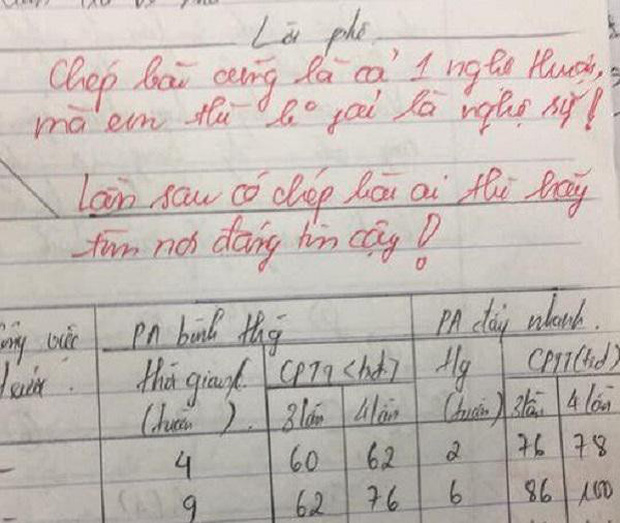 Lời phê
Chép bài cũng là cả 1 nghệ thuật,
mà em thì ko phải là nghệ sỹ!
Lần sau có chép bài ai thì hãy
tìm nơi đáng tin cậy!
PA bình thg PA đẩy nhanh.
thời gian (tuần) CPTT (trđ) tg (tuần) CPTT (trđ)
3 lần 4 lần 3 lần 4 lần
4 60 62 2 76 78
9 62 76 6 86 100